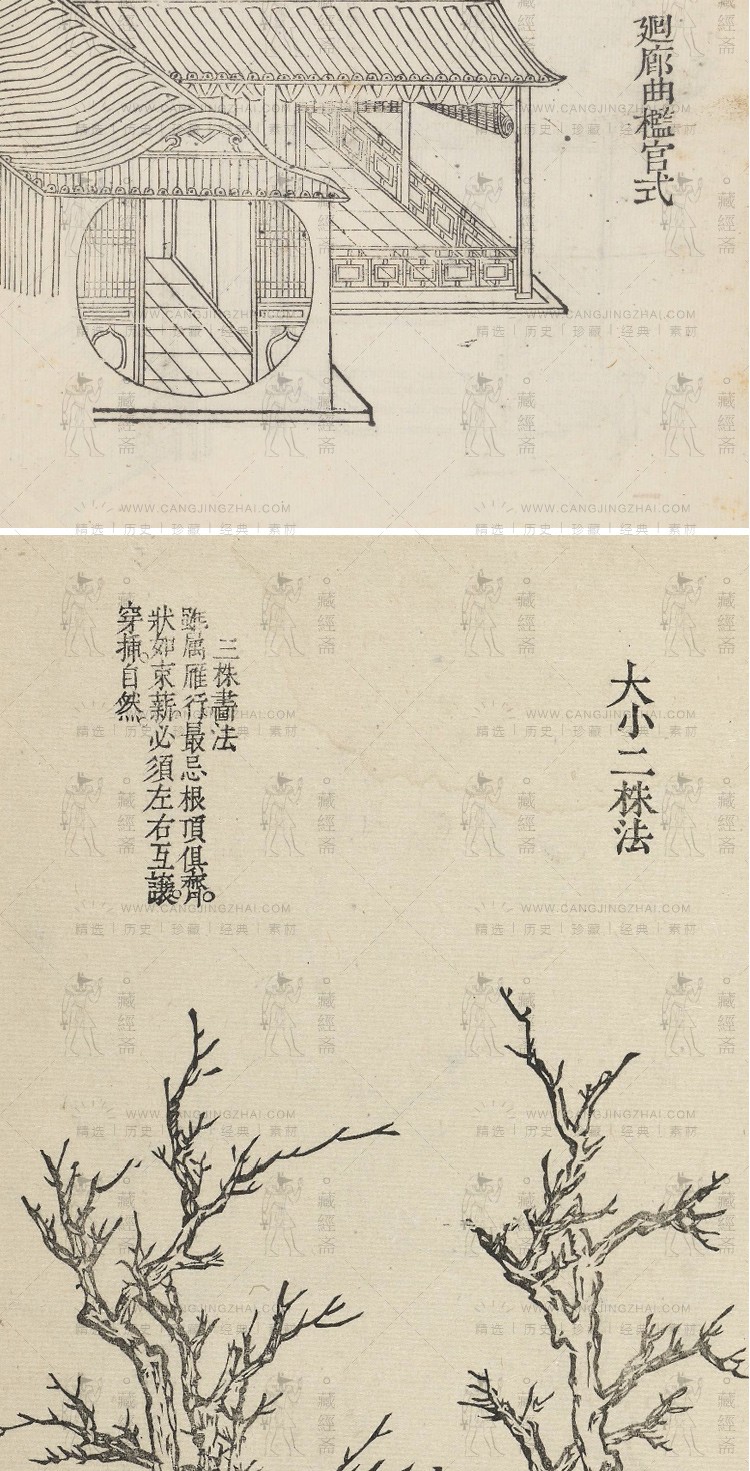 廻廊曲檻官式
大小二株法
三株畫法
雖属雁行最忌根頂俱齊。
狀如束薪必須左右互讓。
穿插自然
WWW.CANGJINGZHAI.COM
精选 | 历史 | 珍藏 | 经典 | 素材
藏經斋